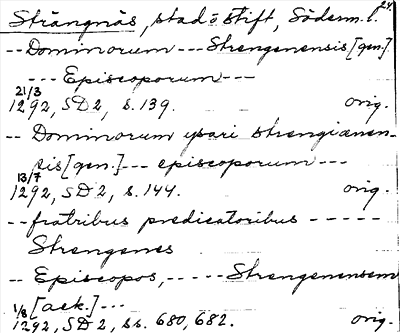 Strängnäs, stad o. stift, Söderm. l. 24.
-- Dominorum --- Strengenensis [gen.]
--- Episcoporum ---
21/3
1292, SD 2, s. 139. orig.
-- Dominorum ipsari strengianen-
sis [gen.] --- episcoporum ---
13/7
1292, SD 2, s. 144. orig.
-- fratribus predicatoribus -----
Strengenes
-- Episcopos, ----- Strengenensem
1/8 [ack.] ---
1292, SD 2, ss. 680, 682. orig.